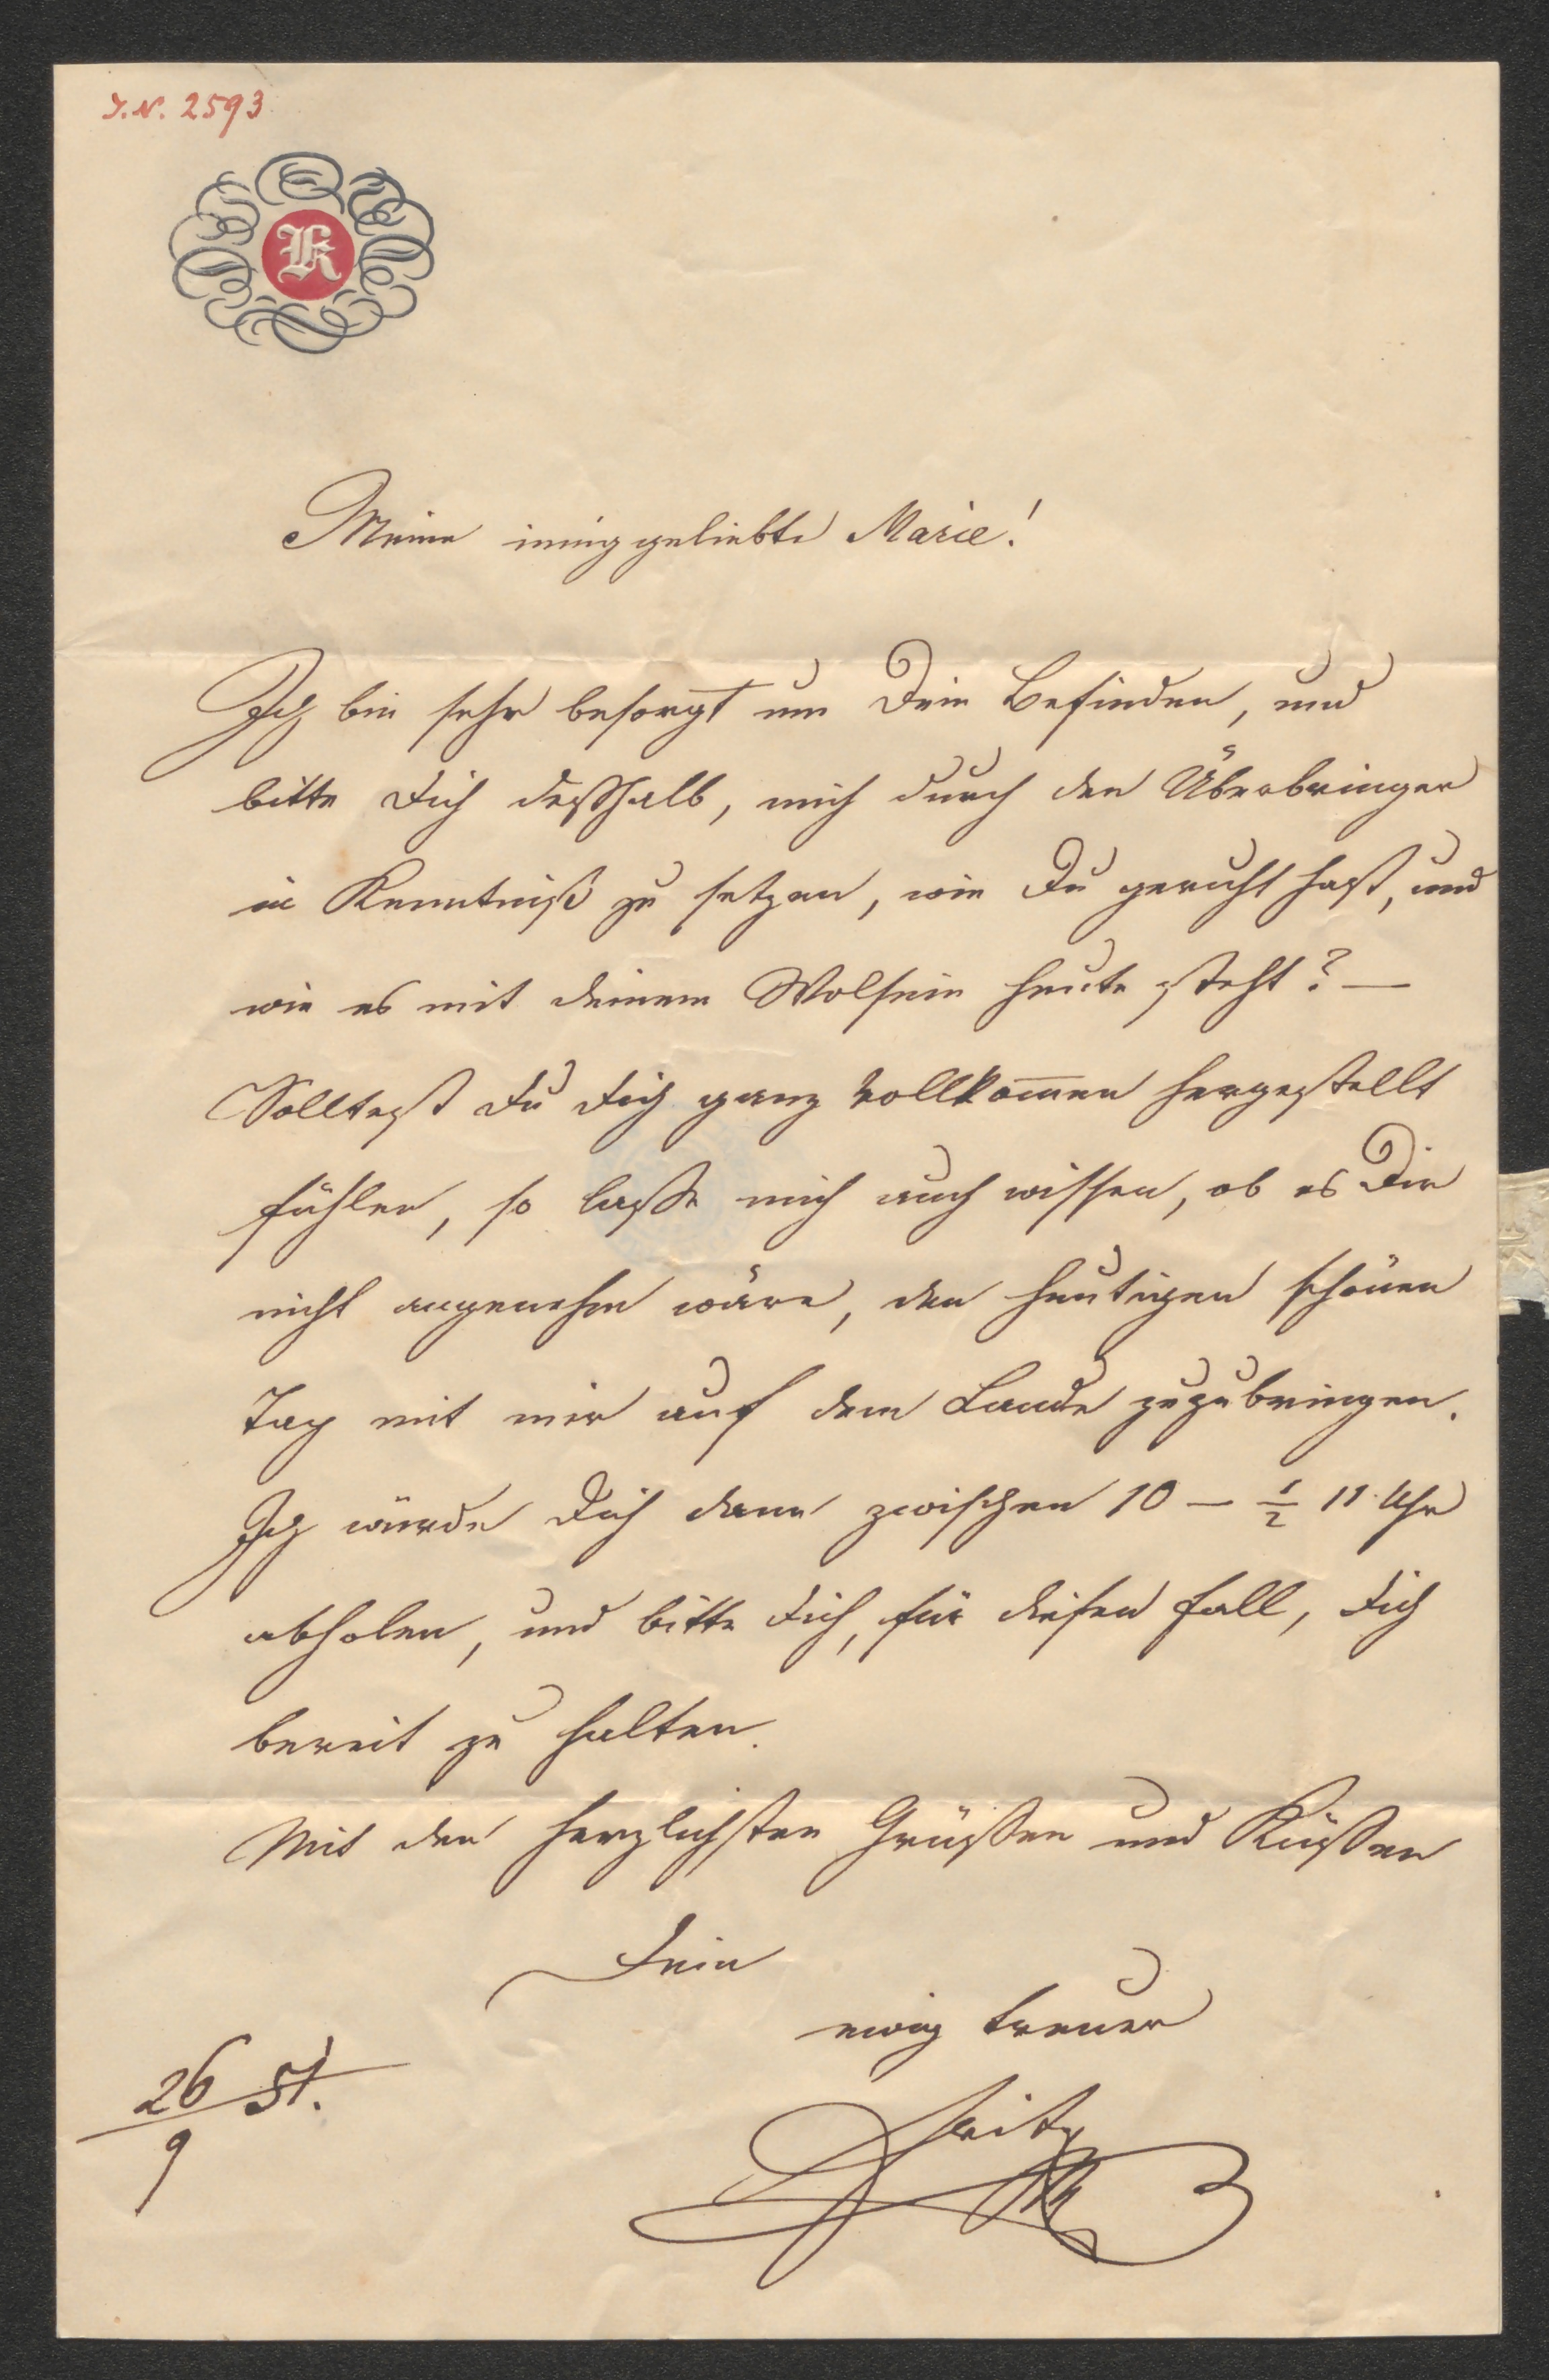 I.N. 2593
K
Meine inniggeliebte Marie!
Ich bin sehr besorgt um Dein Befinden, und
bitte Dich deßhalb, mich durch den Überbringer
in Kenntniß zu setzen, wie Du geruht hast, und
wie es mit deinem Wolsein heute steht? —
Solltest Du Dich ganz vollkom̅en hergestellt
fühlen, so lasse mich auch wissen, ob es Dir
nicht angenehm wäre, den heutigen schönen
Tag mit mir auf dem Lande zuzubringen.
Ich würde Dich dann zwischen 10 — ½ 11 Uhr
abholen, und bitte Dich, für diesen Fall, Dich
bereit zu halten.
Mit den herzlichsten Grüßen und Küßen
Dein
ewig treuer
Fritz
26/9 51.